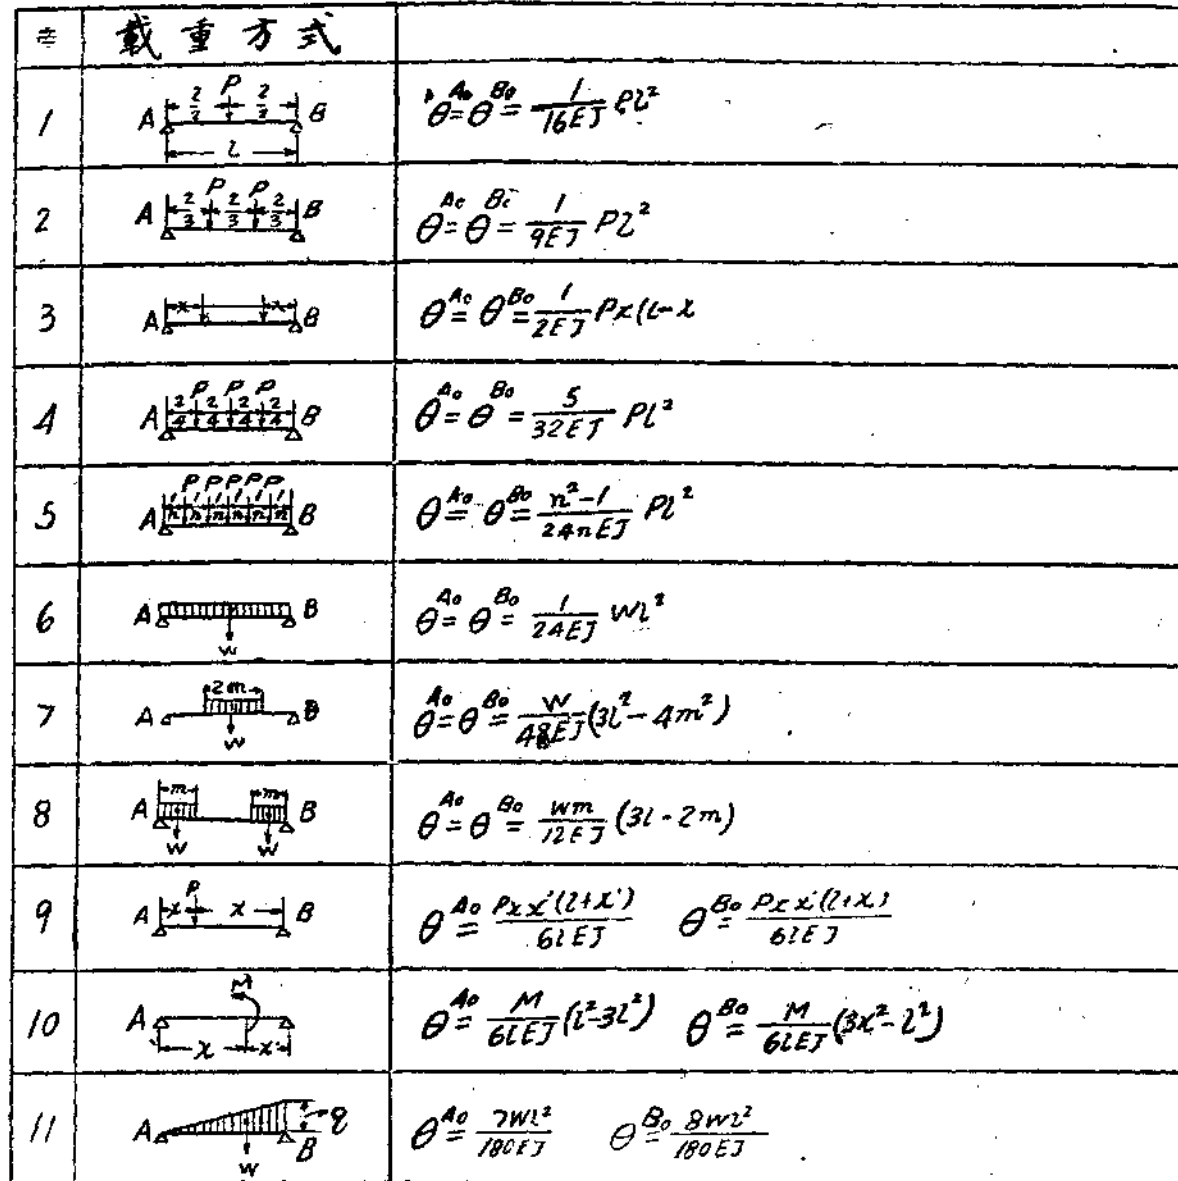 載重方式
1 A P B 2/2 2/2 l θ^A₀ = θ^B₀ = 1/16EJ Pl²
2 A P P B 2/3 2/3 2/3 θ^A₀ = θ^B₀ = 1/9EJ Pl²
3 A x x B θ^A₀ = θ^B₀ = 1/2EJ Px(l-x
4 A P P P B 2/4 2/4 2/4 2/4 θ^A₀ = θ^B₀ = 5/32EJ Pl²
5 A P P P P P B 1/n 1/n 1/n 1/n 1/n 1/n θ^A₀ = θ^B₀ = n²-1/24nEJ Pl²
6 A B W θ^A₀ = θ^B₀ = 1/24EJ Wl²
7 A 2m B W θ^A₀ = θ^B₀ = W/48EJ (3l²-4m²)
8 A m m B W W θ^A₀ = θ^B₀ = Wm/12EJ (3l-2m)
9 A P x x B θ^A₀ = Pxx'(l+x')/6lEJ θ^B₀ = Pxx'(l+x)/6lEJ
10 A M x x' θ^A₀ = M/6lEJ (l²-3l²) θ^B₀ = M/6lEJ (3x²-l²)
11 A B W q θ^A₀ = 7Wl²/180EJ θ^B₀ = 8Wl²/180EJ